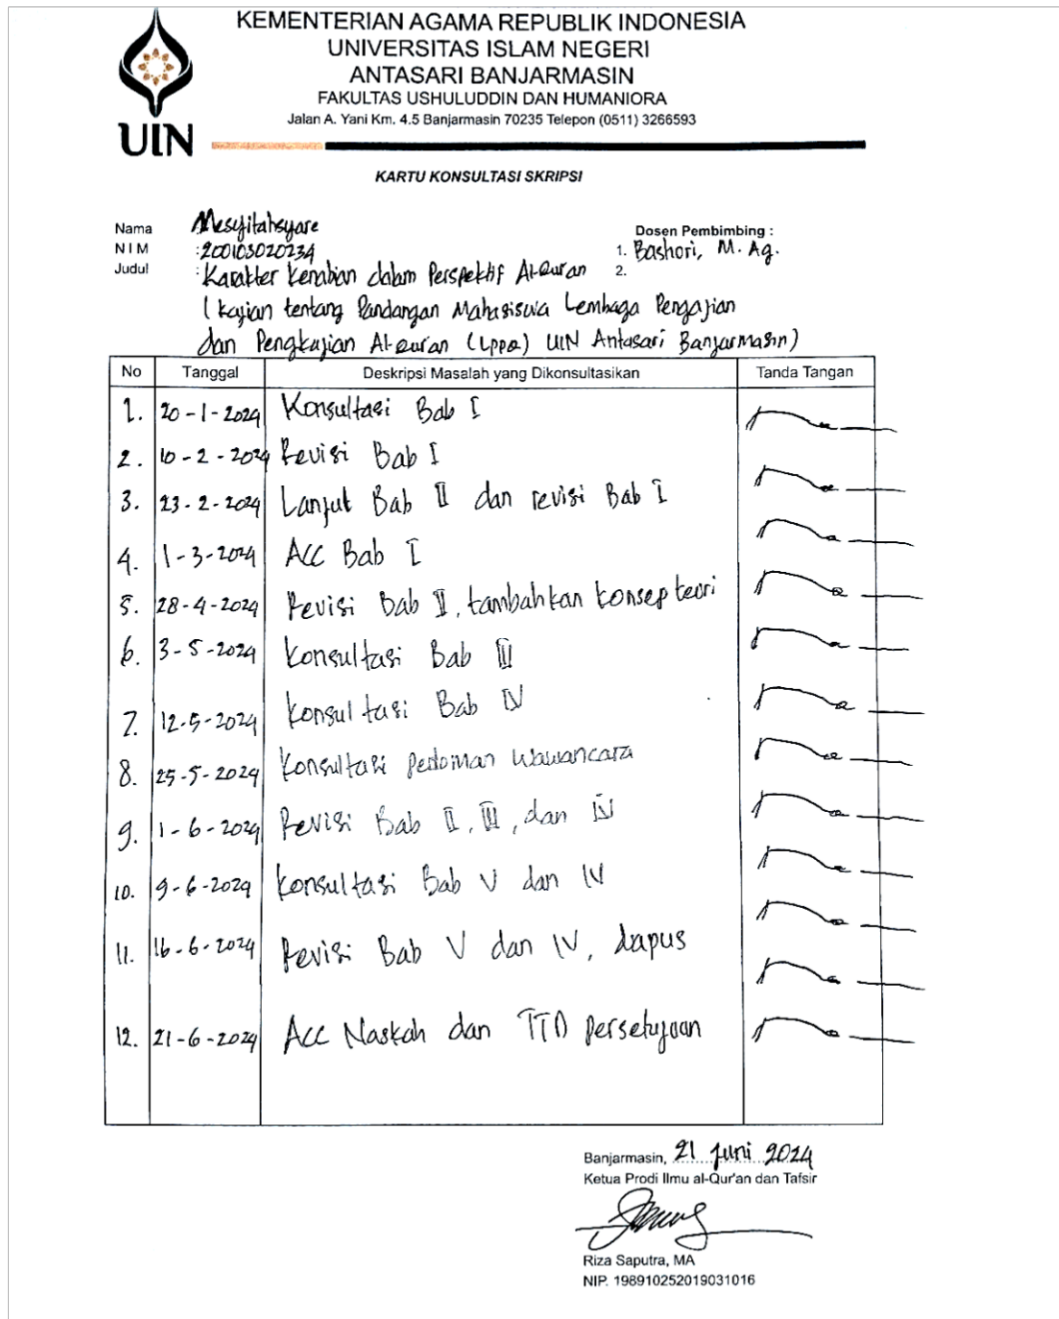 KEMENTERIAN AGAMA REPUBLIK INDONESIA
UNIVERSITAS ISLAM NEGERI
ANTASARI BANJARMASIN
FAKULTAS USHULUDDIN DAN HUMANIORA
Jalan A. Yani Km. 4.5 Banjarmasin 70235 Telepon (0511) 3266593
UIN
KARTU KONSULTASI SKRIPSI
Nama Mesyitahsyare
NIM : 200103020234
Judul : Karakter Kenabian dalam Perspektif Al-Quran
(kajian tentang Pandangan Mahasiswa Lembaga Pengajian
dan Pengkajian Al-Quran (LPPQ) UIN Antasari Banjarmasin)
Dosen Pembimbing :
1. Bashori, M. Ag.
2.
No Tanggal Deskripsi Masalah yang Dikonsultasikan Tanda Tangan
1. 20-1-2024 Konsultasi Bab I
2. 10-2-2024 Revisi Bab I
3. 23-2-2024 Lanjut Bab II dan revisi Bab I
4. 1-3-2024 ACC Bab I
5. 28-4-2024 Revisi Bab II, tambahkan konsep teori
6. 3-5-2024 Konsultasi Bab III
7. 12-5-2024 Konsultasi Bab IV
8. 25-5-2024 Konsultasi Pedoman Wawancara
9. 1-6-2024 Revisi Bab II, III, dan IV
10. 9-6-2024 Konsultasi Bab V dan IV
11. 16-6-2024 Revisi Bab V dan IV, dapus
12. 21-6-2024 Acc Naskah dan TTD Persetujuan
Banjarmasin, 21 Juni 2024
Ketua Prodi Ilmu al-Qur'an dan Tafsir
Riza Saputra, MA
NIP. 198910252019031016